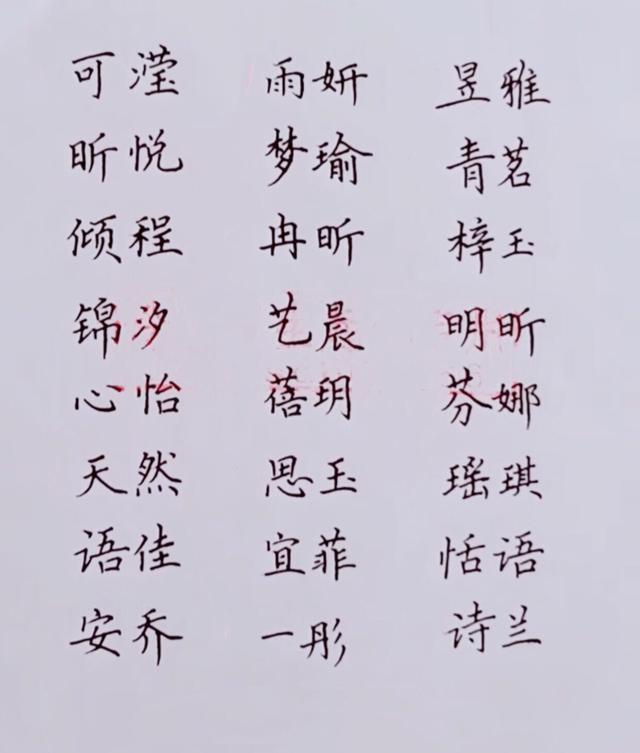 可滢 雨妍 昱雅
昕悦 梦瑜 青茗
倾程 冉昕 梓玉
锦汐 艺晨 明昕
心怡 蓓玥 芬娜
天然 思玉 瑶琪
语佳 宜菲 恬语
安乔 一彤 诗兰